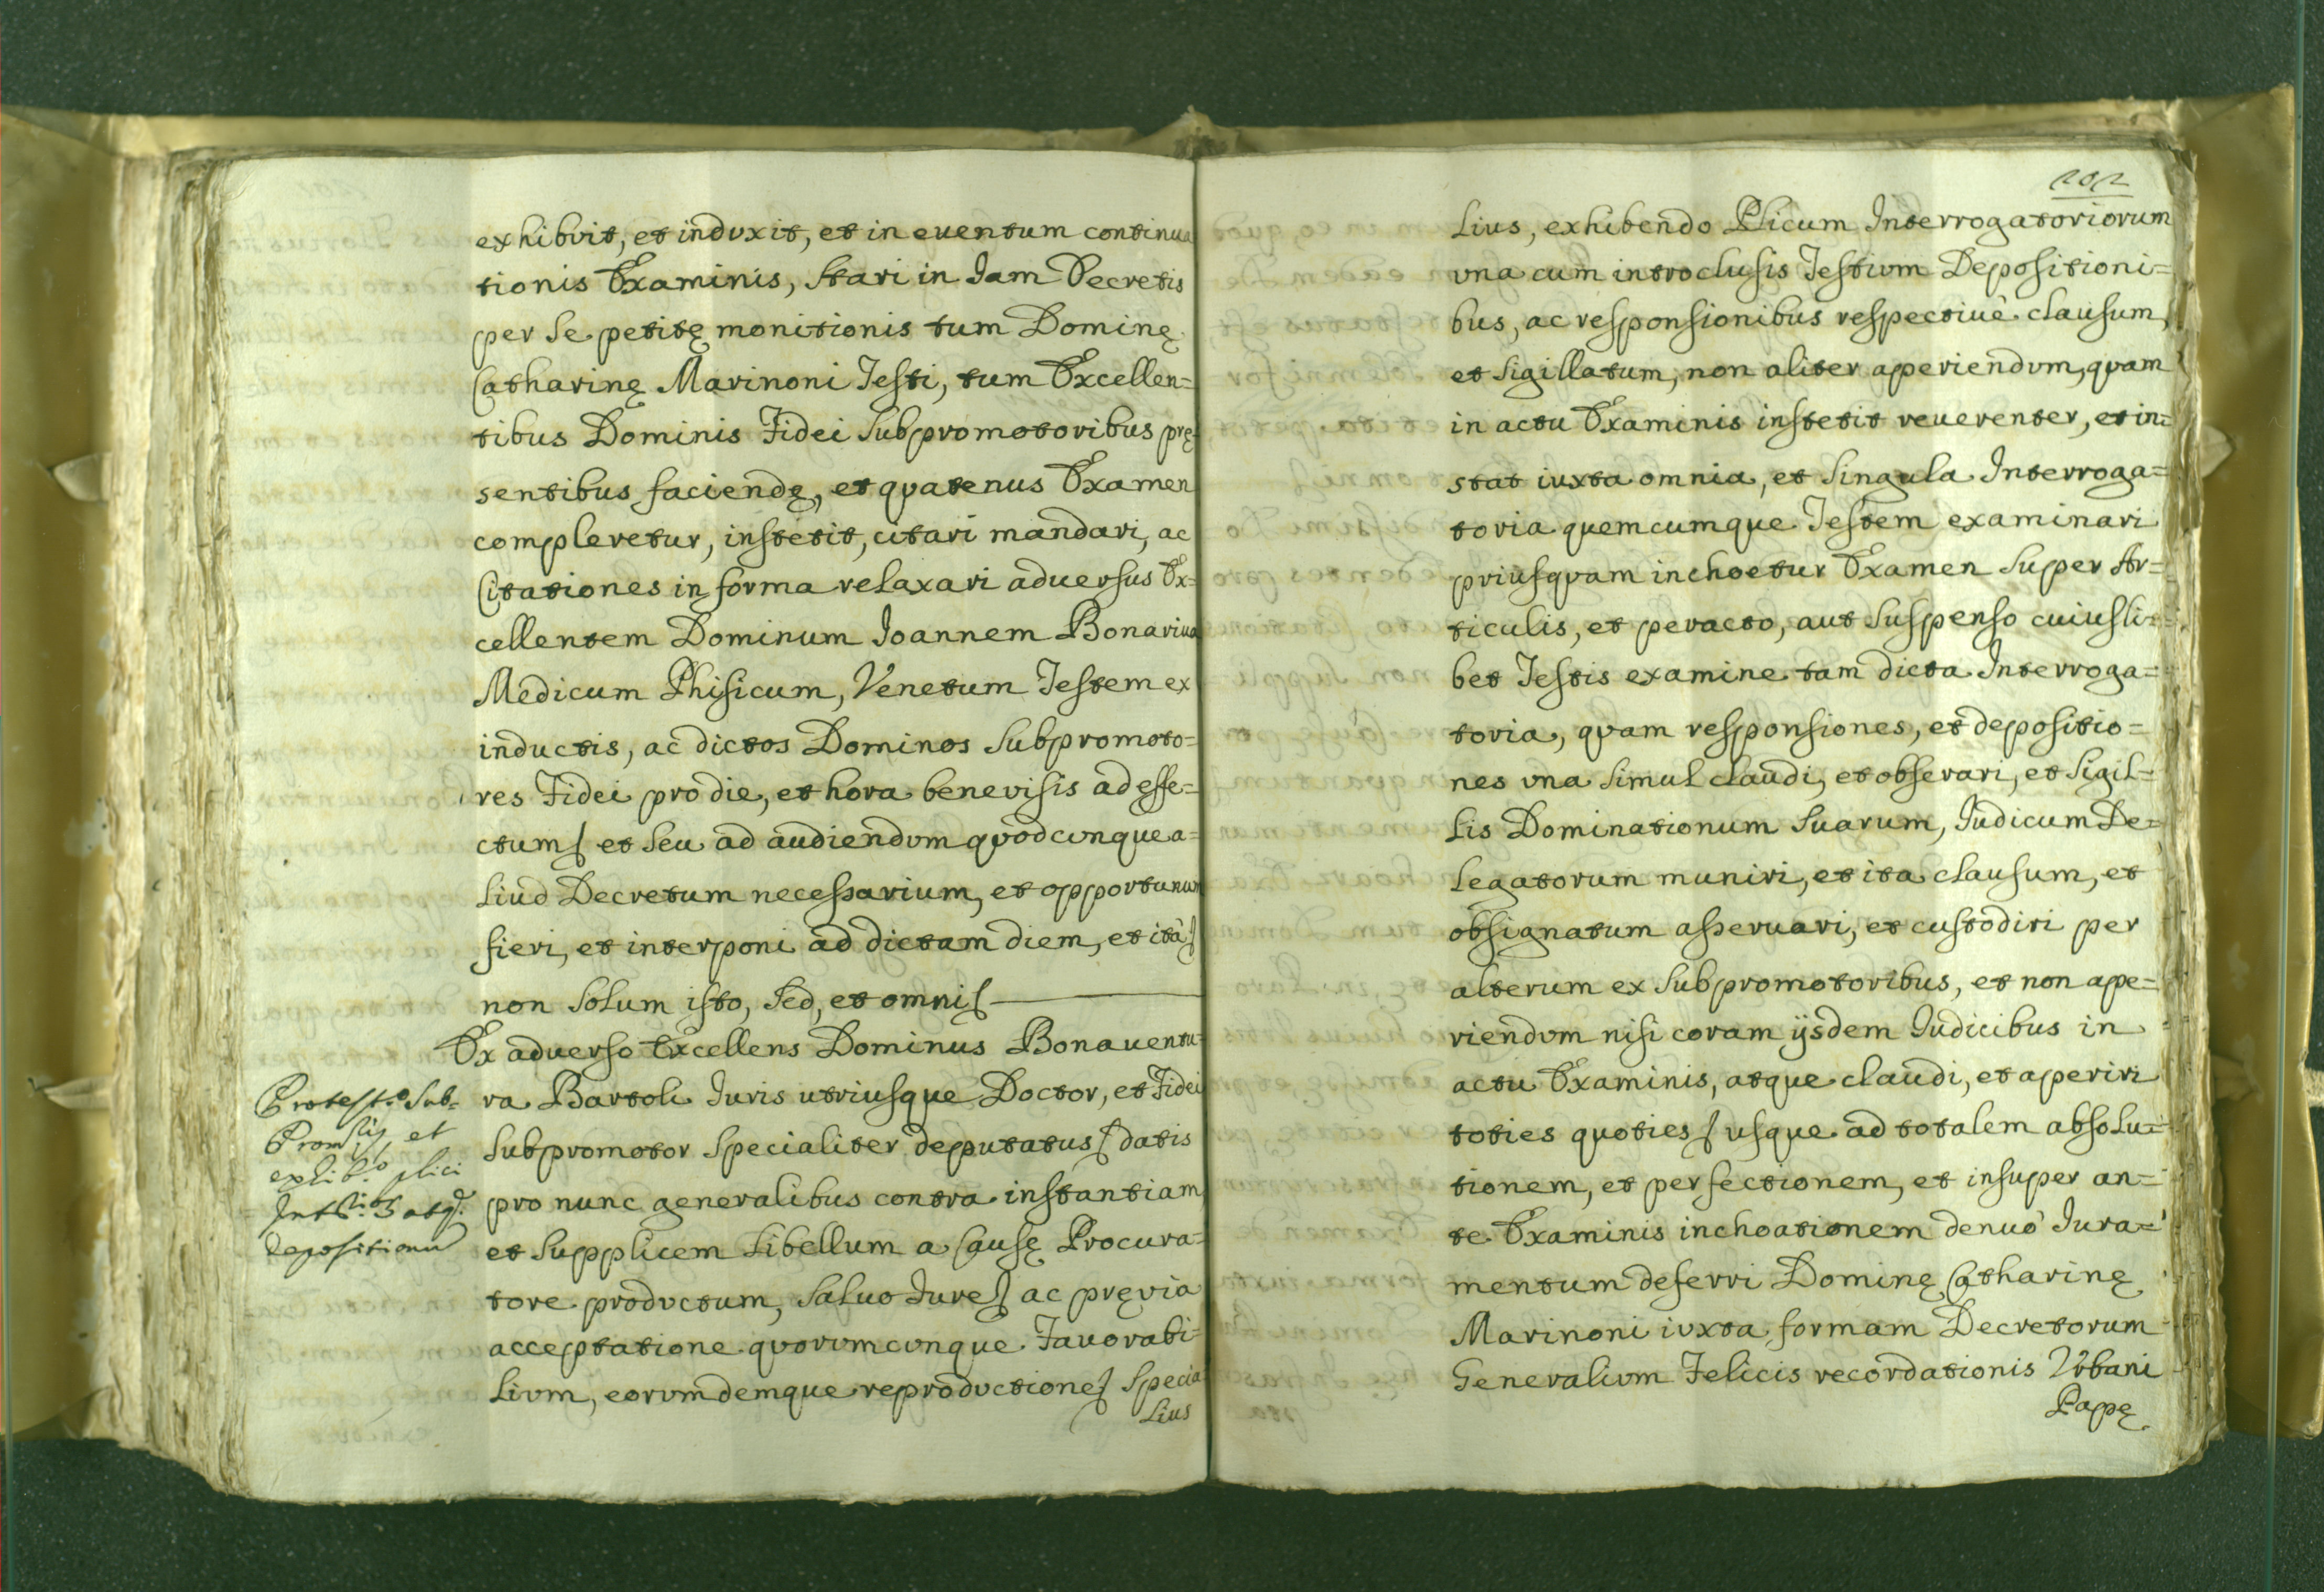 exhibuit, et induxit, et in euentum continua
tionis Examinis, stari in Jam Decretis
per se petitę monitionis tum Dominę
Catharinę Marinoni Testi, tum Excellen=
tibus Dominis Fidei Subpromotoribus prę
sentibus faciendę, et quatenus Examen
compleretur, instetit, citari mandari, ac
Citationes in forma relaxari aduersus Ex=
cellentem Dominum Joannem Bonariua
Medicum Phisicum, Venetum Testem ex
inductis, ac dictos Dominos Subpromoto=
res Fidei pro die, et hora benevisis ad effe=
ctum et seu ad audiendum quodcunque a=
liud Decretum necessarium, et opportunum
fieri, et interponi ad dictam diem, et ità
non solum isto, sed, et omni
Ex aduerso Excellens Dominus Bonauentu=
ra Bartoli Juris utriusque Doctor, et Fidei
Subpromotor specialiter deputatus datis
pro nunc generalibus contra instantiam
et supplicem Libellum a Causę Procura=
tore productum, saluo Jure ac pręvia
acceptatione quorumcunque Fauorabi=
lium, eorumdemque reproductione Specia
lius
Protest.º Sub=
Prom et
exhib.º plici
atq.
depositionu
202
lius, exhibendo Plicum Interrogatoriorum
vna cum introclusis Testium Depositioni=
bus, ac responsionibus respectiuè clausum,
et sigillatum, non aliter aperiendum, quam
in actu Examinis instetit reuerenter, et in=
stat iuxta omnia, et singula Interroga=
toria quemcumque Testem examinari
priusquam inchoetur Examen super Ar=
ticulis, et peracto, aut suspenso cuiusli=
bet Testis examine tam dicta Interroga=
toria, quam responsiones, et depositio=
nes vna simul claudi, et obserari, et sigil=
lis Dominationum suarum, Judicum De=
legatorum muniri, et ita clausum, et
obsignatum asseruari, et custodiri per
alterum ex Subpromotoribus, et non ape=
riendum nisi coram ijsdem Judicibus in
actu Examinis, atque claudi, et aperiri
toties quoties usque ad totalem absolu=
tionem, et perfectionem, et insuper an=
te Examinis inchoationem denuò Jura=
mentum deferri Dominę Catharinę
Marinoni iuxta formam Decretorum
Generalium Felicis recordationis Vrbani
Papę